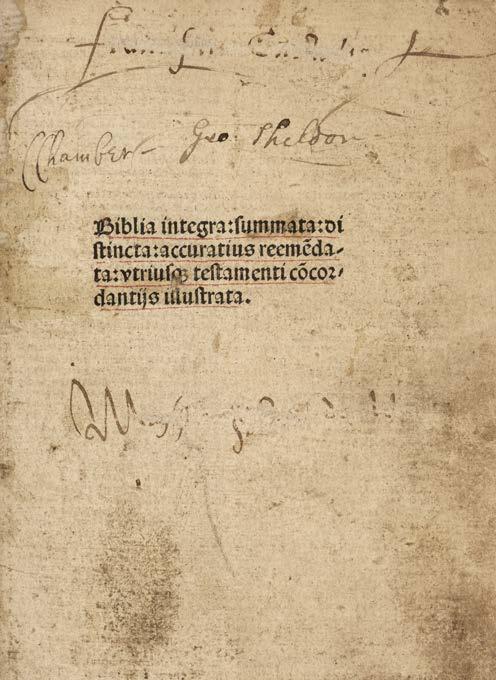 Chamber Geo Sheldon
Biblia integra:summata:di
stincta:accuratius reemēda-
ta:vtriusqꝫ testamenti cōcor-
dantijs illustrata.